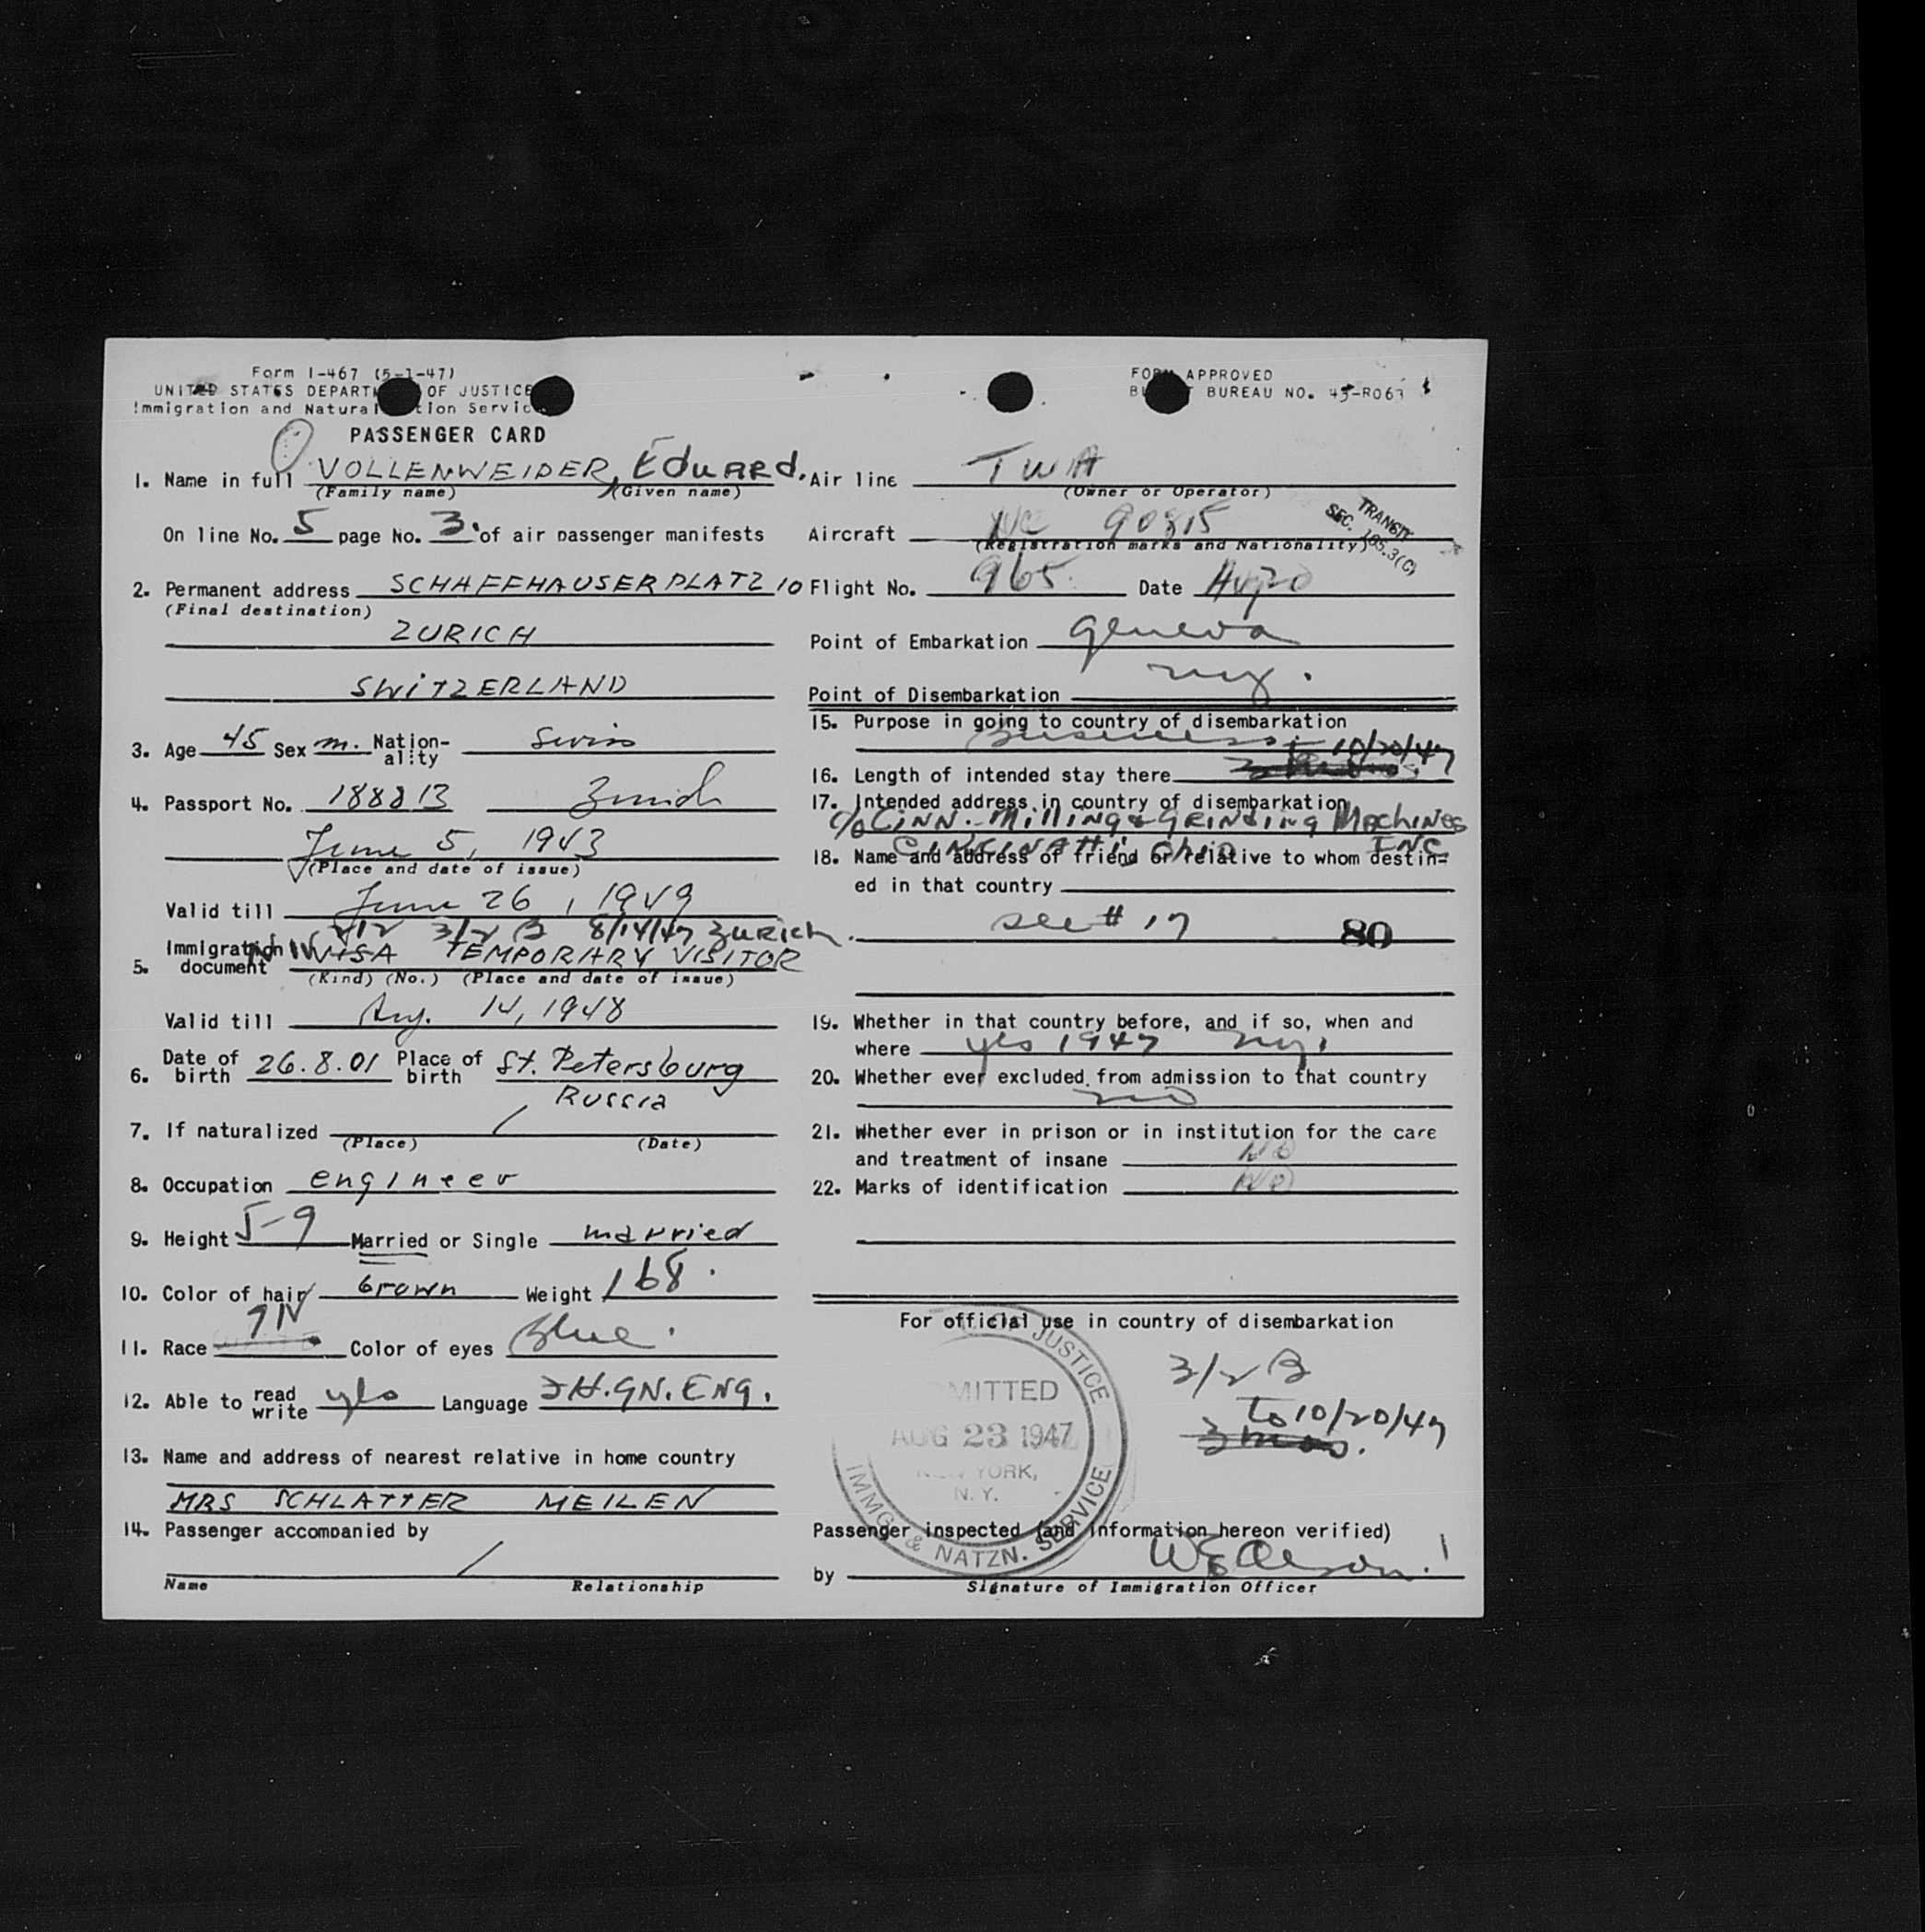 Form I-467 (5-1-47)
UNITED STATES DEPARTM OF JUSTICE
Immigration and Natural tion Servic
PASSENGER CARD
FOR APPROVED
B T BUREAU NO. 43-R063
1. Name in full VOLLENWEIDER, Eduard.
(Family name) (Given name)
On line No. 5 page No. 3. of air passenger manifests
2. Permanent address SCHAFFHAUSERPLATZ 10
(Final destination)
ZURICH
SWITZERLAND
3. Age 45 Sex m. Nation-ality Swiss
4. Passport No. 188813 Zurich
June 5, 1943
(Place and date of issue)
Valid till June 26, 1949
3/2 B 8/14/47 Zurich.
5. Immigration document VISA TEMPORARY VISITOR
(Kind) (No.) (Place and date of issue)
Valid till Aug. 14, 1948
6. Date of birth 26.8.01 Place of birth St. Petersburg
Russia
7. If naturalized /
(Place) (Date)
8. Occupation engineer
9. Height 5-9 Married or Single married
10. Color of hair brown Weight 168.
11. Race Color of eyes Blue.
12. Able to read write yes Language GN. ENG.
13. Name and address of nearest relative in home country
MRS SCHLATTER MEILEN
14. Passenger accompanied by
/
Name Relationship
Air line TWA
(Owner or Operator)
TRANSIT
SEC. 165.3(C)
Aircraft NC 90815
(Registration marks and Nationality)
Flight No. 965 Date Aug 20
Point of Embarkation Geneva
Point of Disembarkation NY.
15. Purpose in going to country of disembarkation
Business.
16. Length of intended stay there to 10/20/47
17. Intended address in country of disembarkation
c/o CINN. Milling & Grinding Machines
Cincinnati, Ohio INC.
18. Name and address of friend or relative to whom destin-
ed in that country
see # 17
80
19. Whether in that country before, and if so, when and
where yes 1947 NY.
20. Whether ever excluded from admission to that country
no
21. Whether ever in prison or in institution for the care
and treatment of insane NO
22. Marks of identification NO
For official use in country of disembarkation
3/2 B
to 10/20/47
3 mos.
JUSTICE
MITTED
AUG 23 1947
NEW YORK,
N. Y.
IMMG. & NATZN. SERVICE
Passenger inspected (and information hereon verified)
by
Signature of Immigration Officer